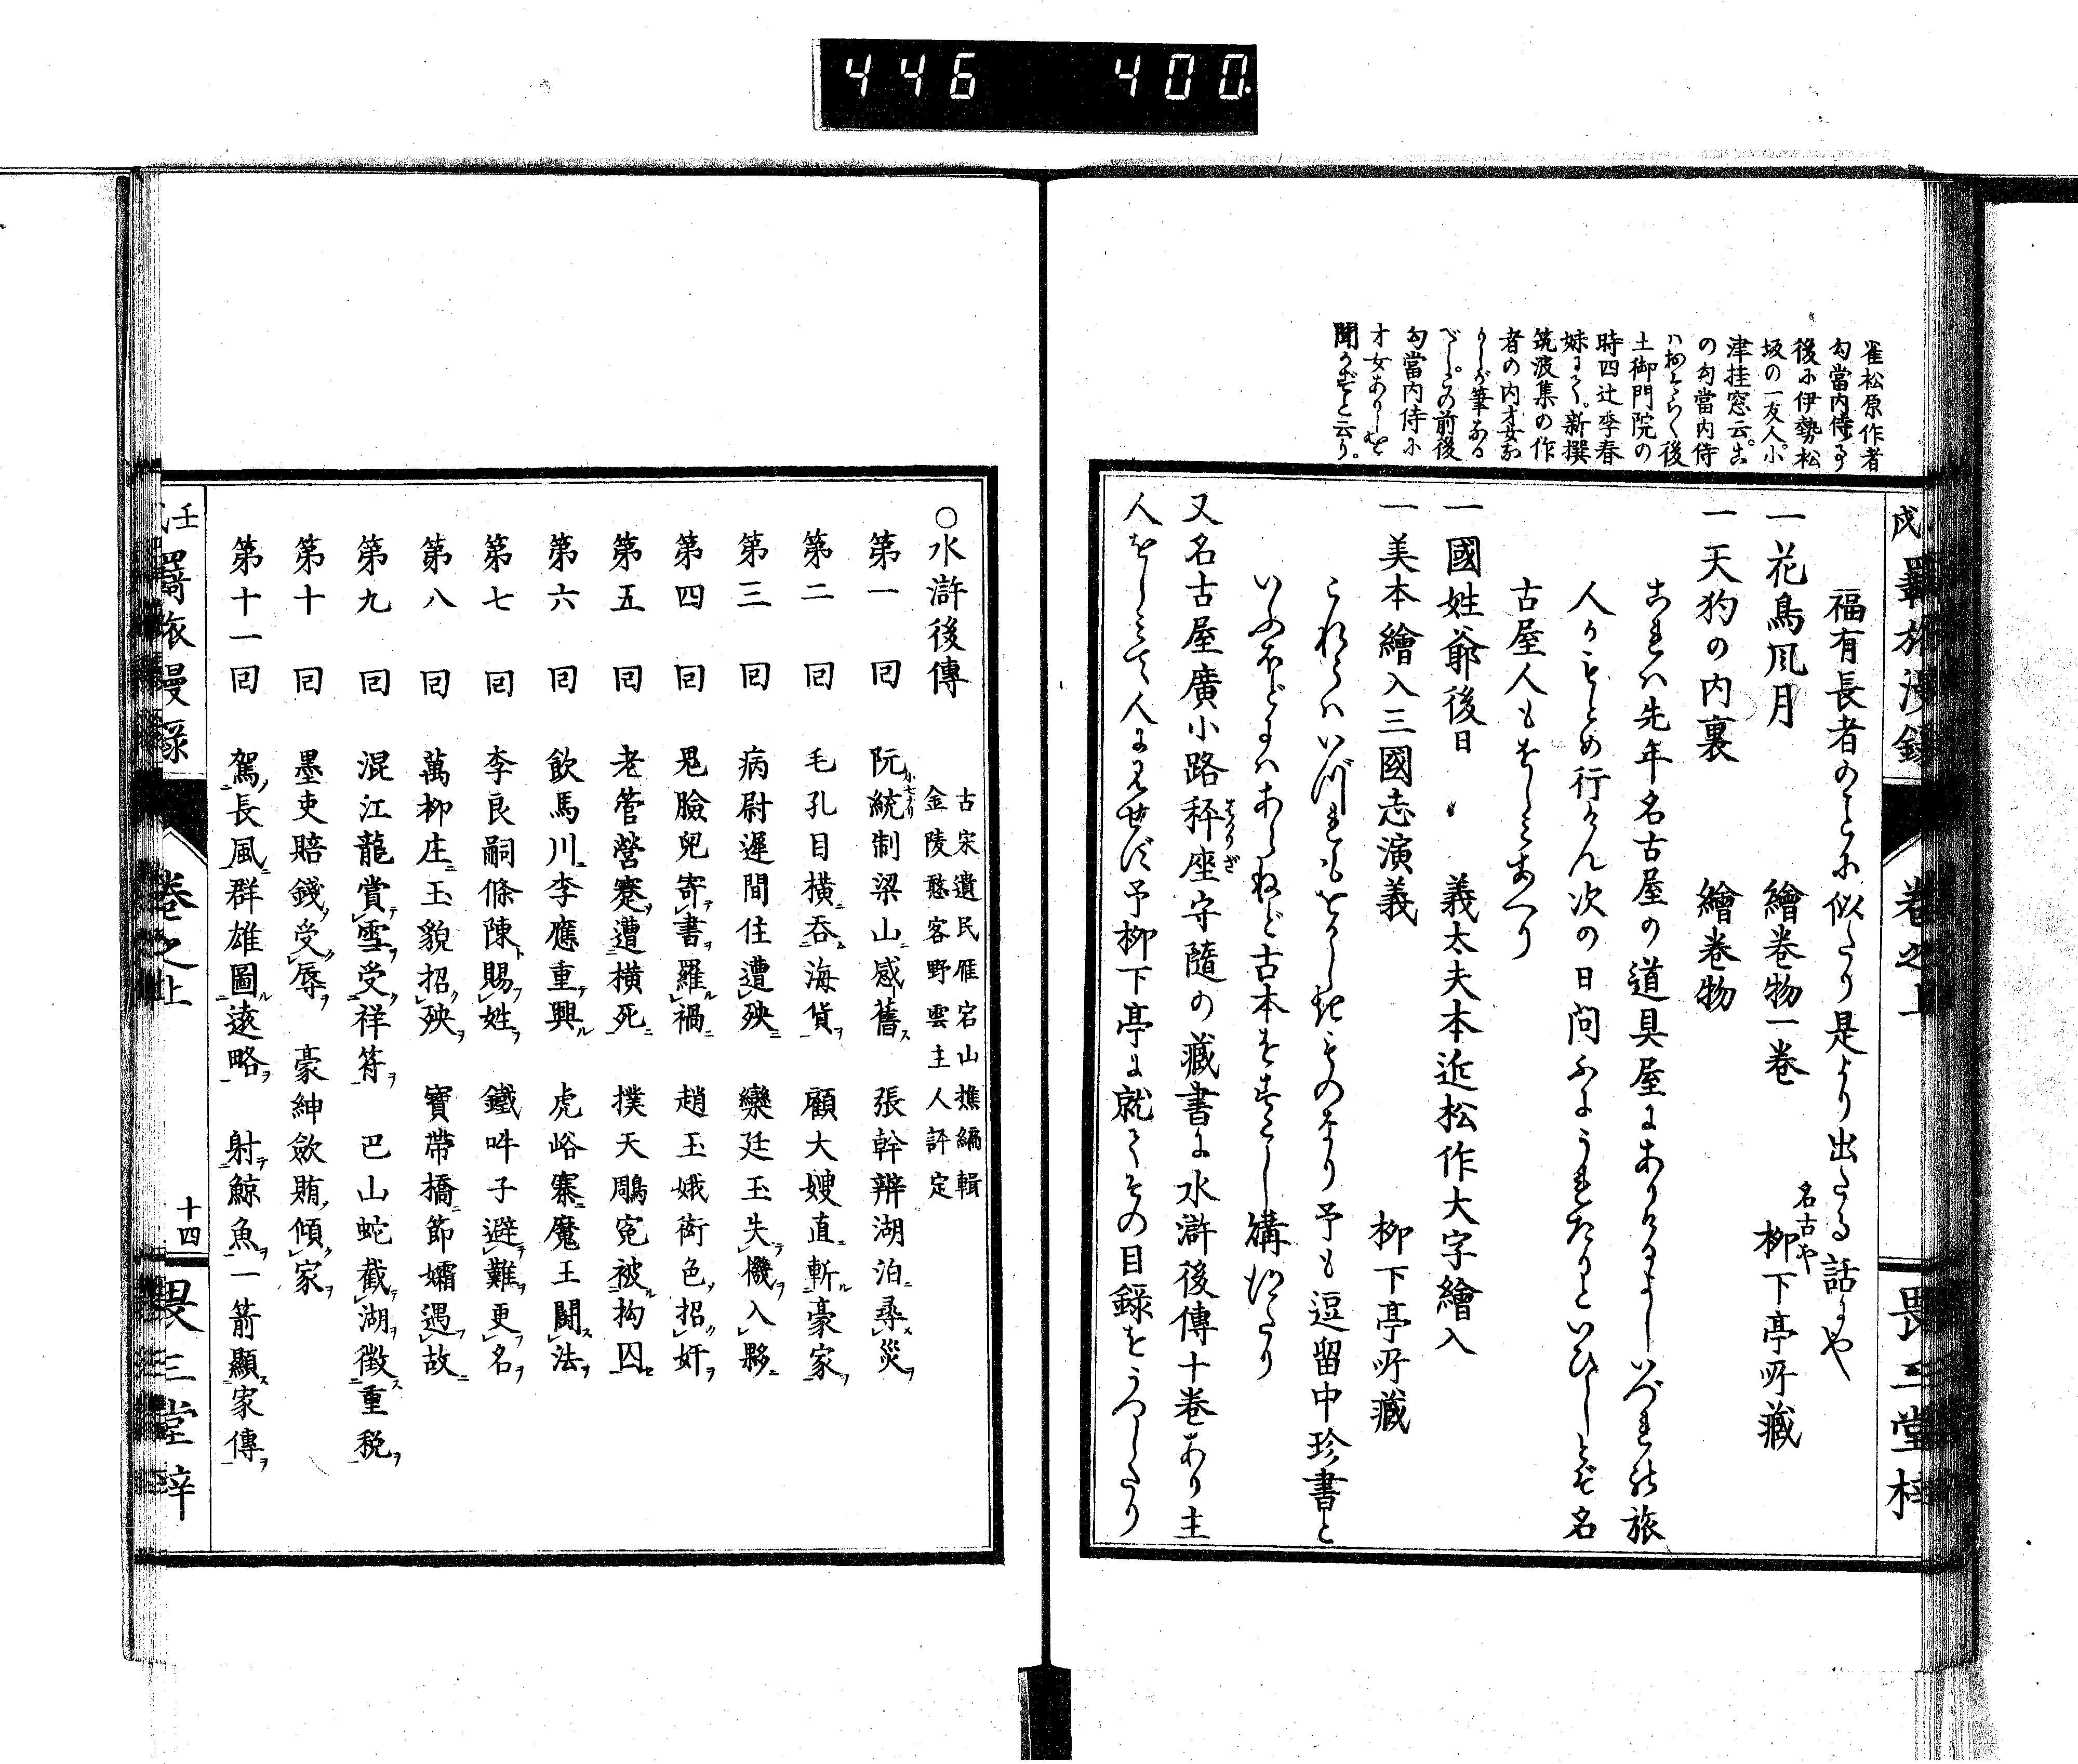 446 400
雀松原作者
勾當内侍る事
後に伊勢松
坂の一友人小
津桂窓云こ
の勾當内侍
土御門院の
時四辻季春
妹にて新撰
筑波集の作
べしこの前後
勾當内侍に
才女ありしを
聞かずと云り。
壬戌羇旅漫録 卷之上 畏三堂梓
福有長者のことに似たり是より出たる話にや
一花鳥風月 繪卷物一卷 名古や 柳下亭所藏
一天狗の内裏 繪卷物
これは先年名古屋の道具屋にありけるよしいづれの旅
人かもとめ行けん次の日問ふにうれたりといひしとぞ名
古屋人もをしみあへり
一國姓爺後日 義太夫本近松作大字繪入
一美本繪入三國志演義 柳下亭所藏
これらはいづれもをかしきものなり予も逗留中珍書と
いふほどにはあらねど古本をすこし購得たり
又名古屋廣小路秤座守隨の藏書に水滸後傳十卷あり主
人をしみて人に見せず予柳下亭に就てその目録をうつしたり
○水滸後傳 古宋遺民雁宕山樵編輯
金陵憨客野雲主人評定
第一回 阮統制梁山感舊 張幹辨湖泊尋災
第二回 毛孔目橫吞海貨 顧大嫂直斬豪家
第三回 病尉遲間住遭殃 欒廷玉失機入夥
第四回 鬼臉兒寄書羅禍 趙玉娥衒色招奸
第五回 老管營蹇遭橫死 撲天鵰冤被拘囚
第六回 飲馬川李應重興 虎峪寨魔王鬪法
第七回 李良嗣條陳賜姓 鐵叫子避難更名
第八回 萬柳庄玉貌招殃 寶帶橋節孀遇故
第九回 混江龍賞雪受祥符 巴山蛇截湖徵重稅
第十回 墨吏賠錢受辱 豪紳斂賄傾家
第十一回 駕長風群雄圖遠略 射鯨魚一箭顯家傳
壬戌羇旅漫録 卷之上 十四 畏三堂梓